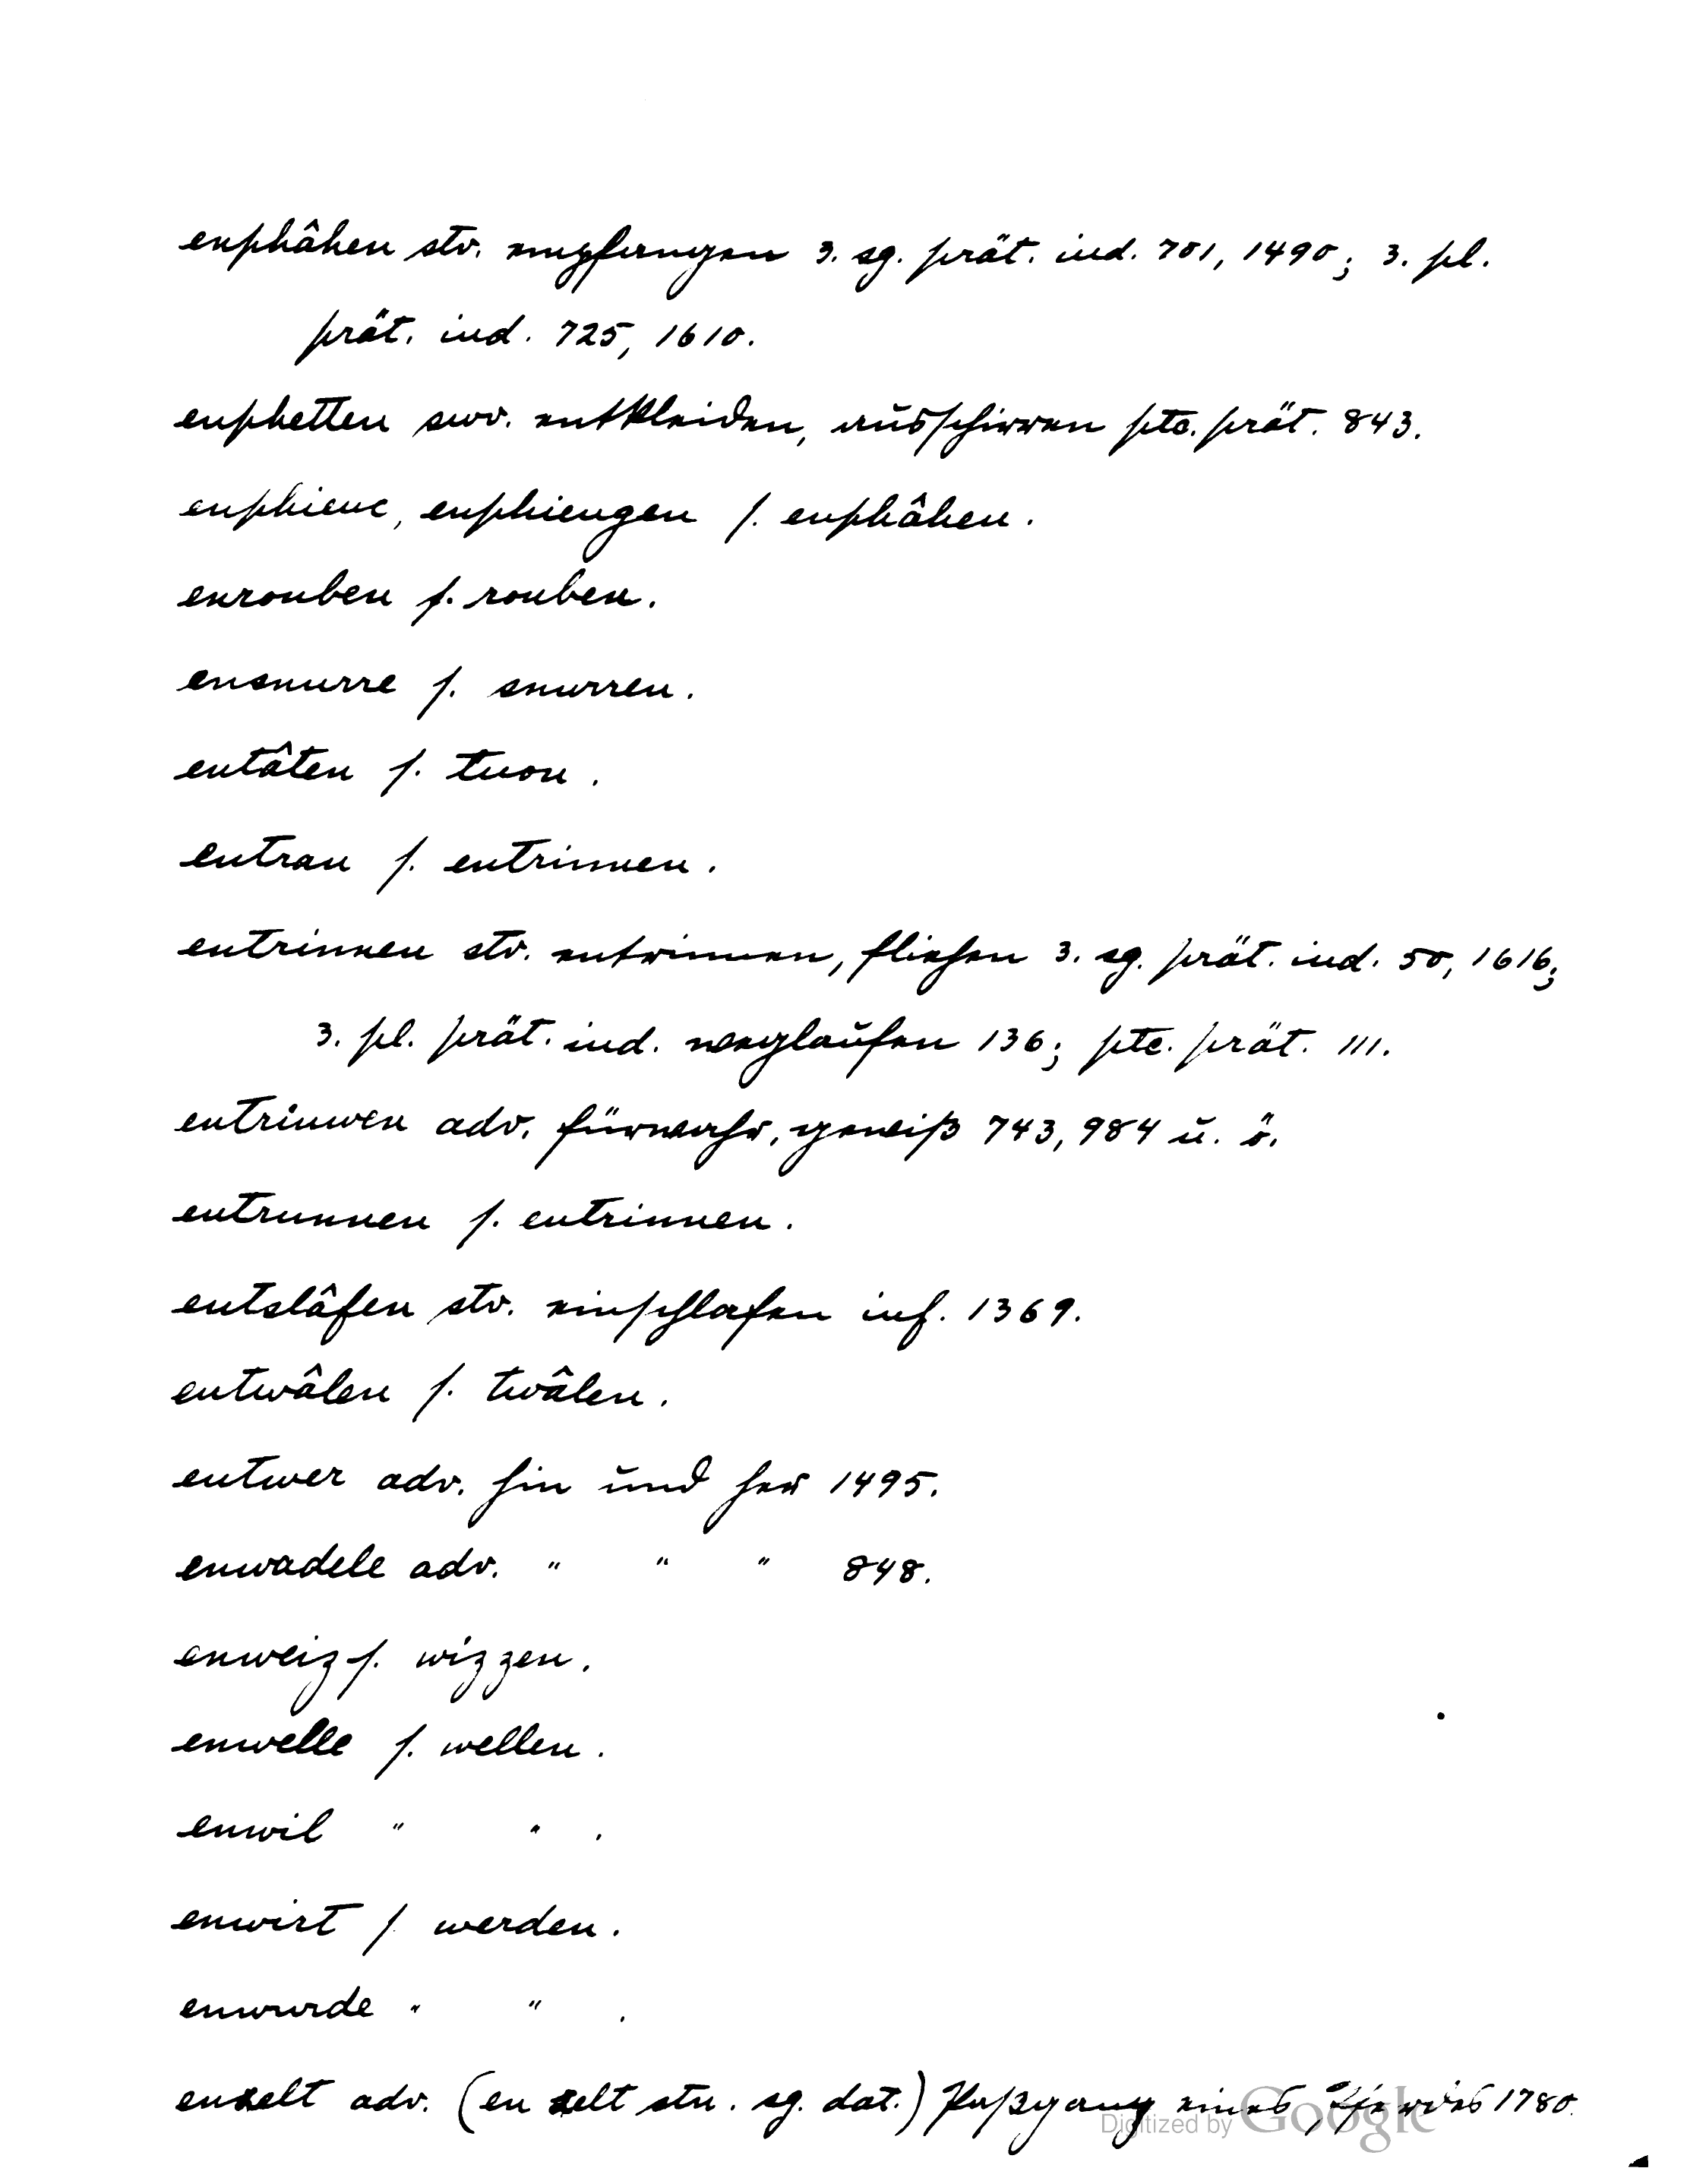 enphâhen stv. empfangen 3. sg. prät. ind. 701, 1490; 3. pl.
prät. ind. 725, 1610.
enphetten swv. entkleiden, ausschirren ptc. prät. 843.
enphienc, enphiengen s. enphâhen.
enrouben s. rouben.
ensnurre s. snurren.
entâten s. tuon.
entran s. entrinnen.
entrinnen stv. entrinnen, fliehen 3. sg. prät. ind. 50, 1616;
3. pl. prät. ind. weglaufen 136; ptc. prät. 111.
entriuwen adv. fürwahr, gewiß 743, 984 u. ö.
entrunnen s. entrinnen.
entslâfen stv. einschlafen inf. 1369.
entwâlen s. twâlen.
entwer adv. hin und her 1495.
enwadele adv. " " " 848.
enweiz s. wizzen.
enwelle s. wellen.
enwil " " .
enwirt s. werden.
enwurde " " .
enzelt adv. (en zelt stn. sg. dat.) Paßgang eines Pferdes 1780.
Digitized by Google